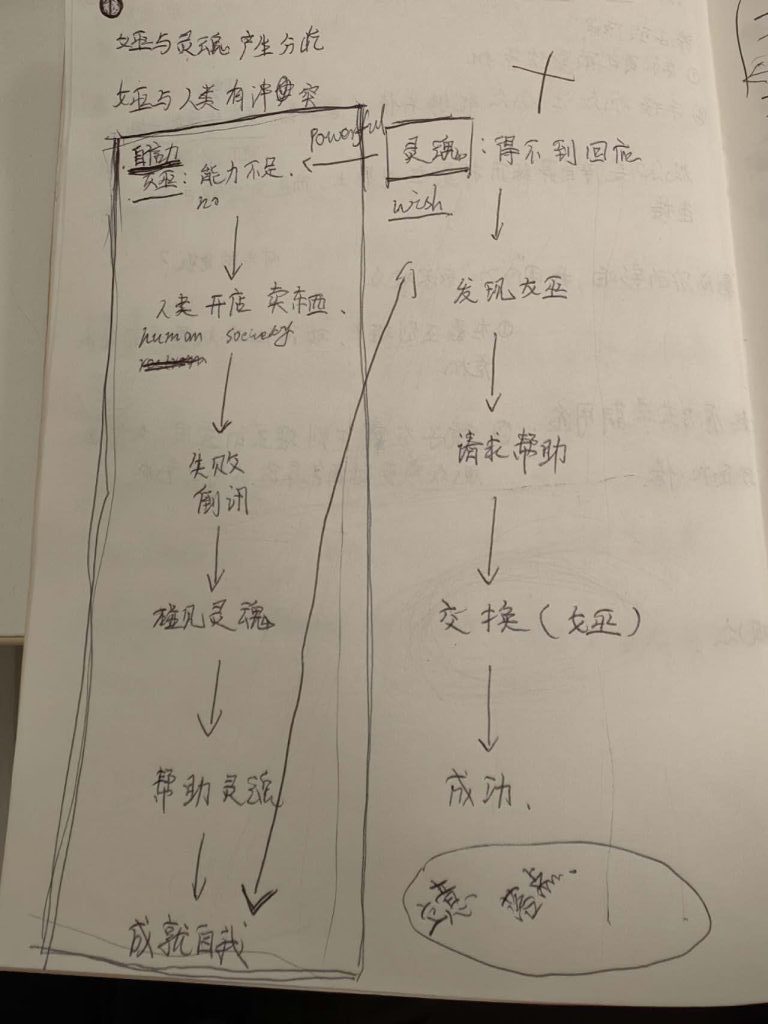 女巫与灵魂产生分歧
女巫与人类有冲突
自信力
女巫: 能力不足.
no
人类开店 卖东西.
human society
失败
倒闭
碰见灵魂
帮助灵魂
成就自我
powerful
灵魂: 得不到回应
wish
发现女巫
请求帮助
交换(女巫)
成功.